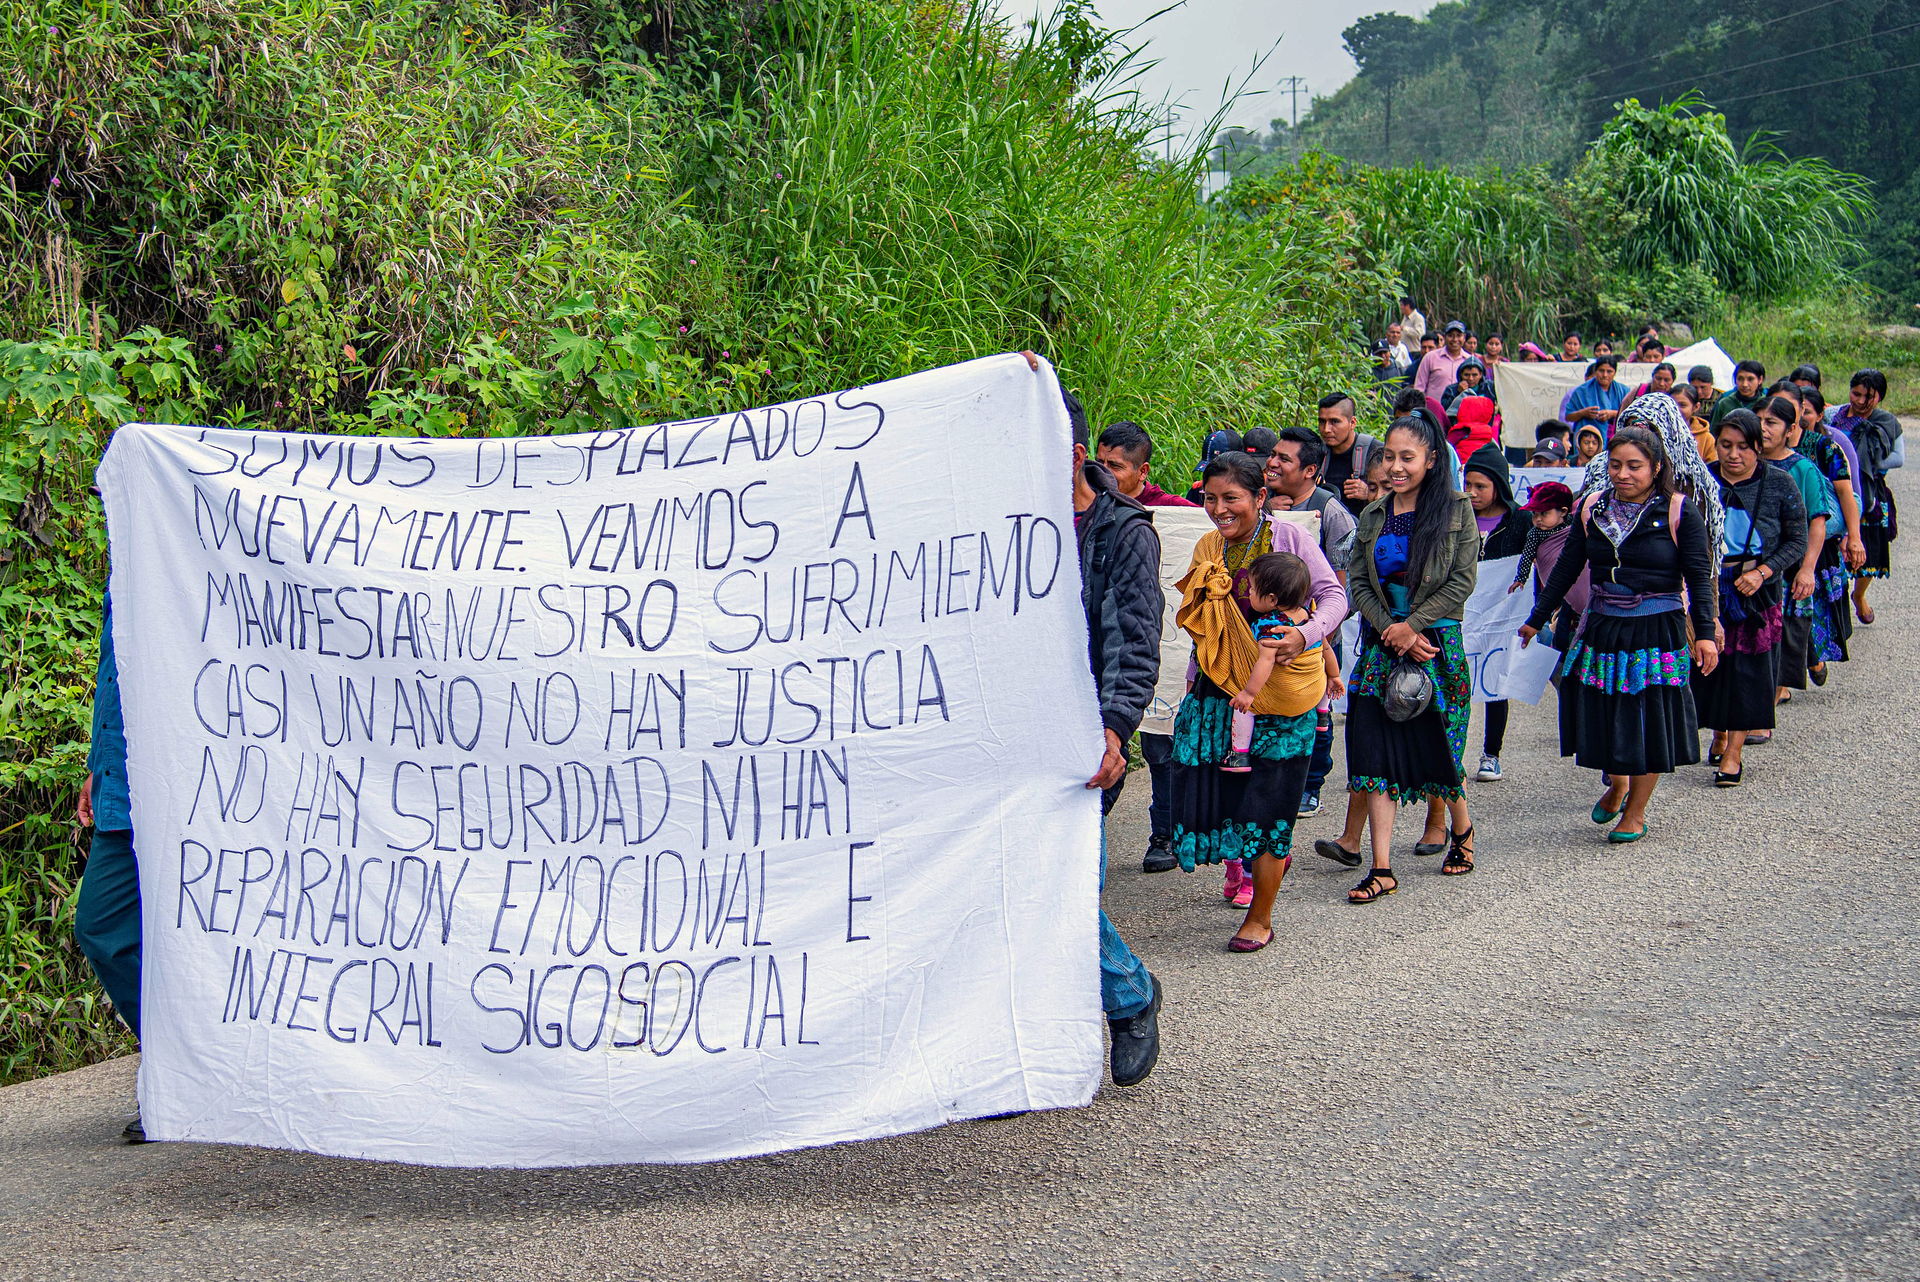 SOMOS DESPLAZADOS
NUEVAMENTE. VENIMOS A
MANIFESTAR NUESTRO SUFRIMIENTO
CASI UN AÑO NO HAY JUSTICIA
NO HAY SEGURIDAD NI HAY
REPARACION EMOCIONAL E
INTEGRAL SIGOSOCIAL
PAZ